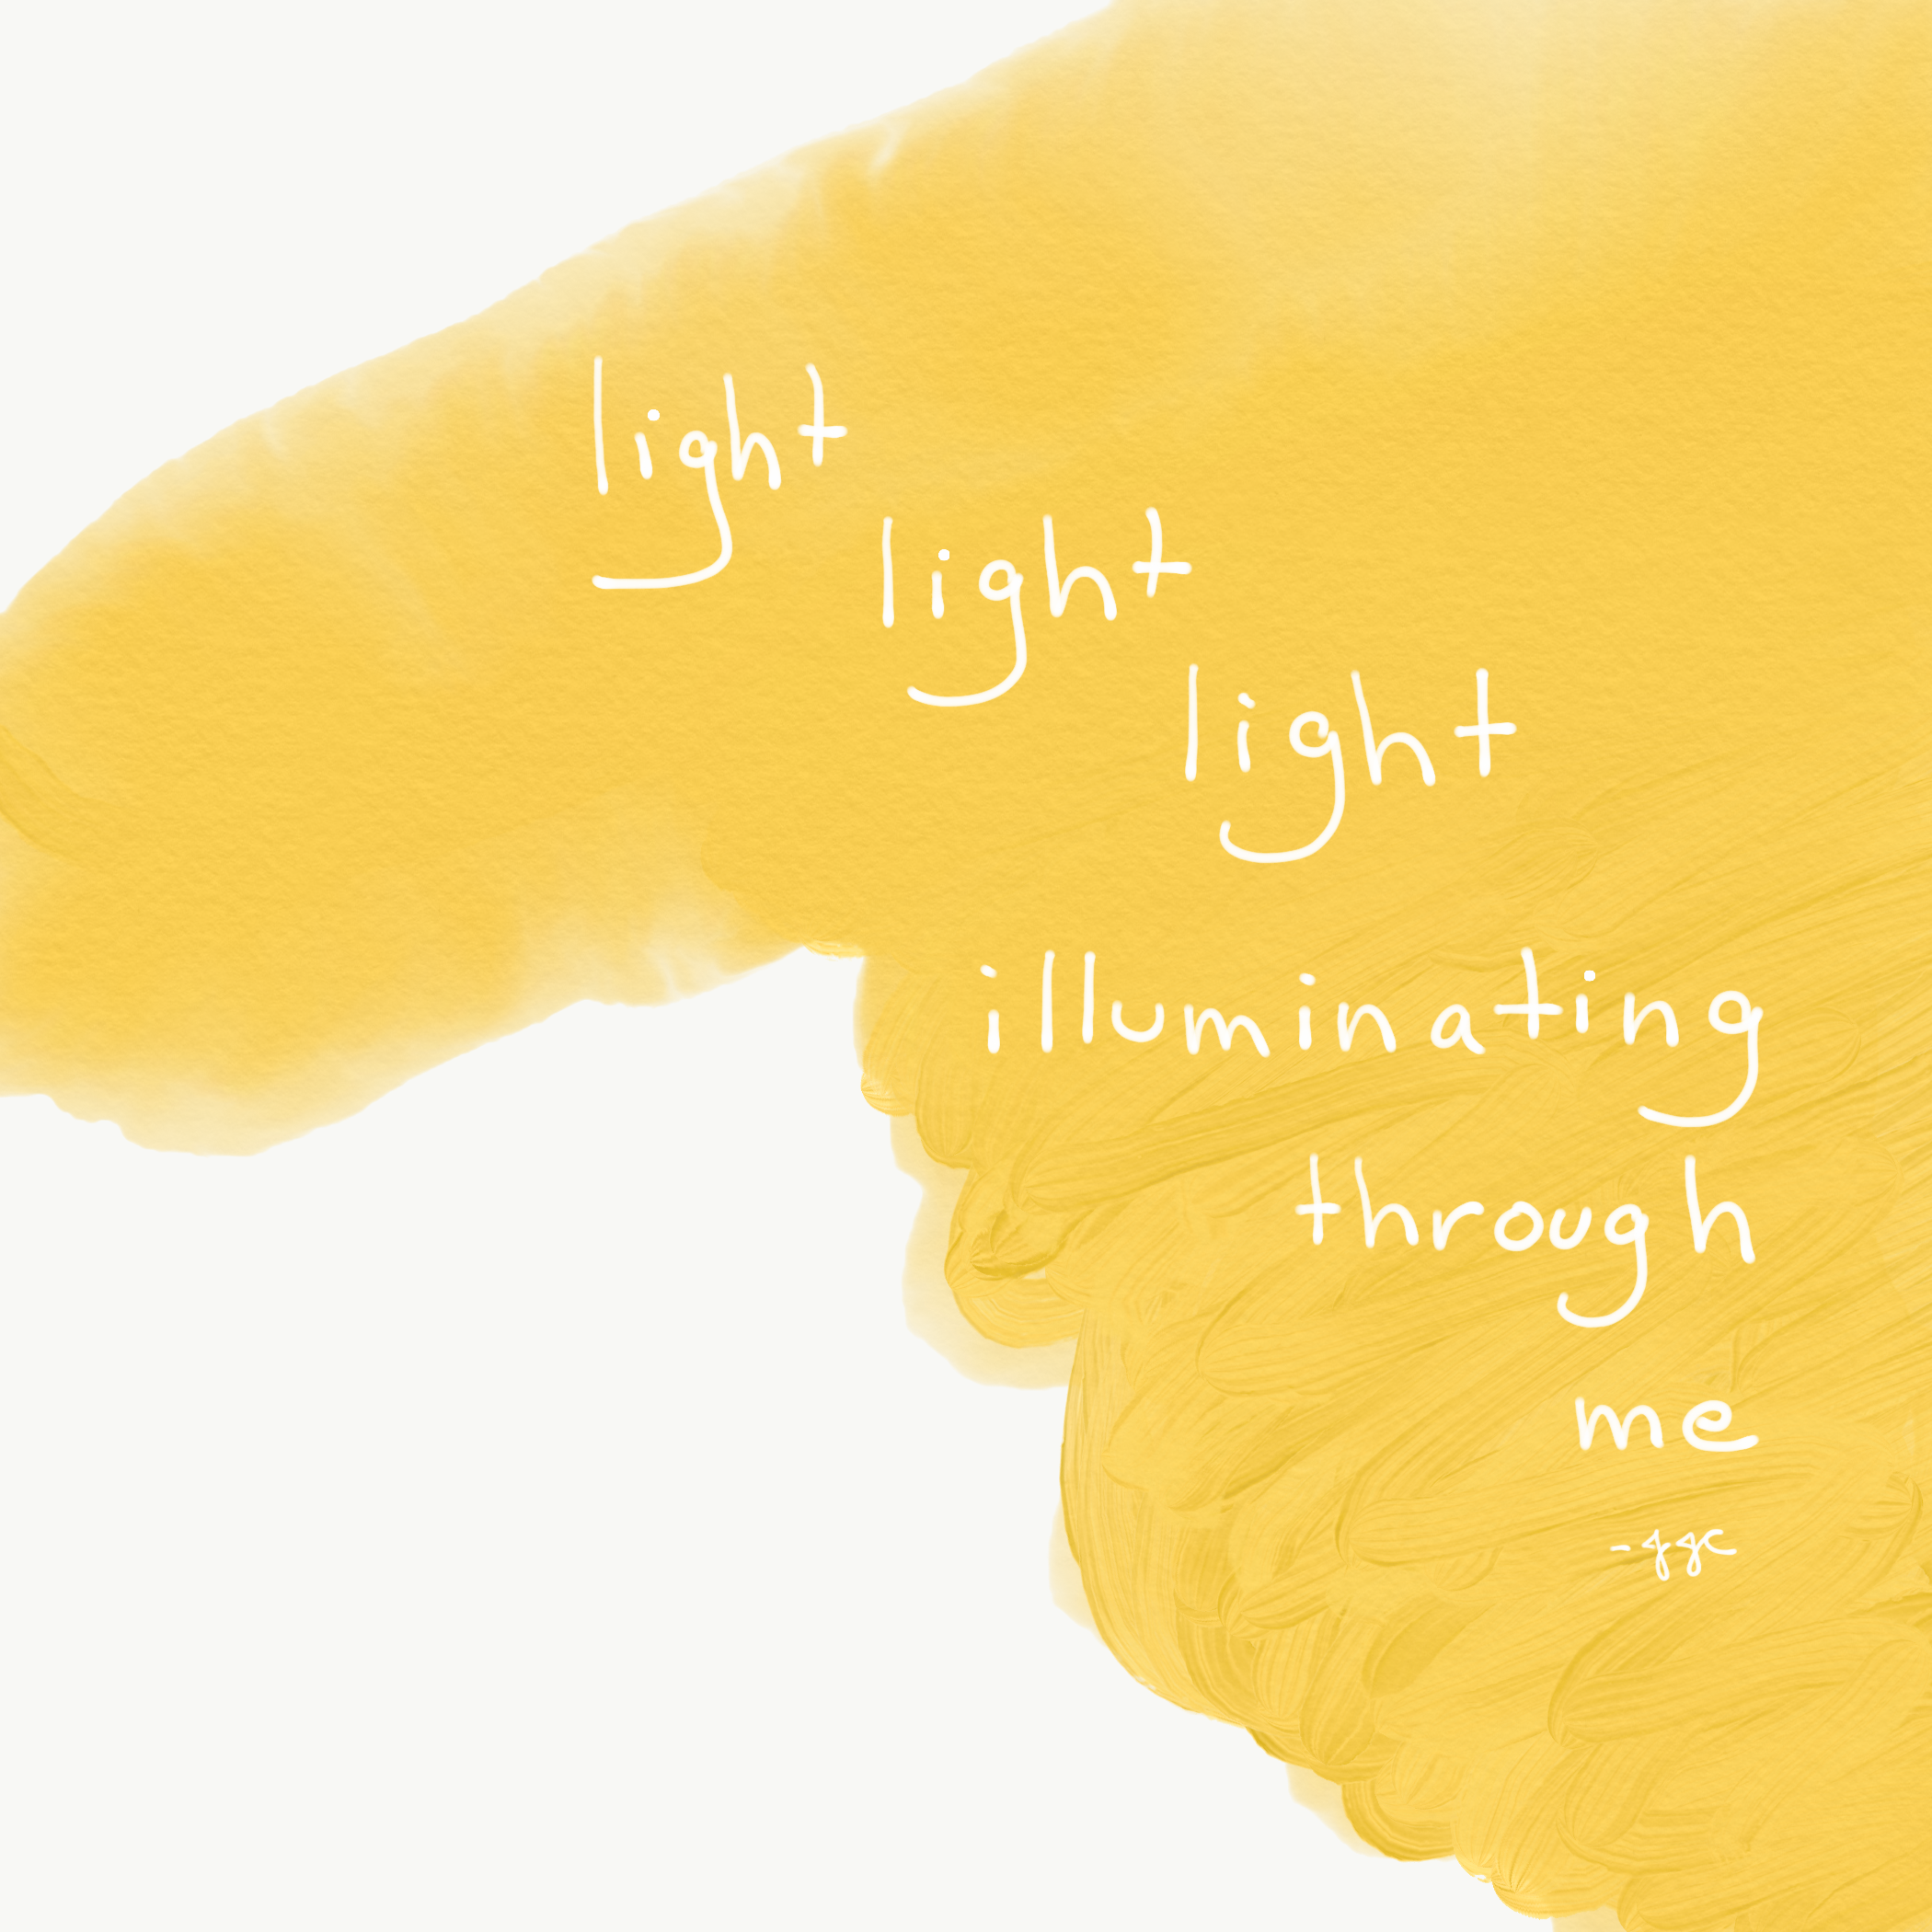 light
light
light
illuminating
through
me
-ggc